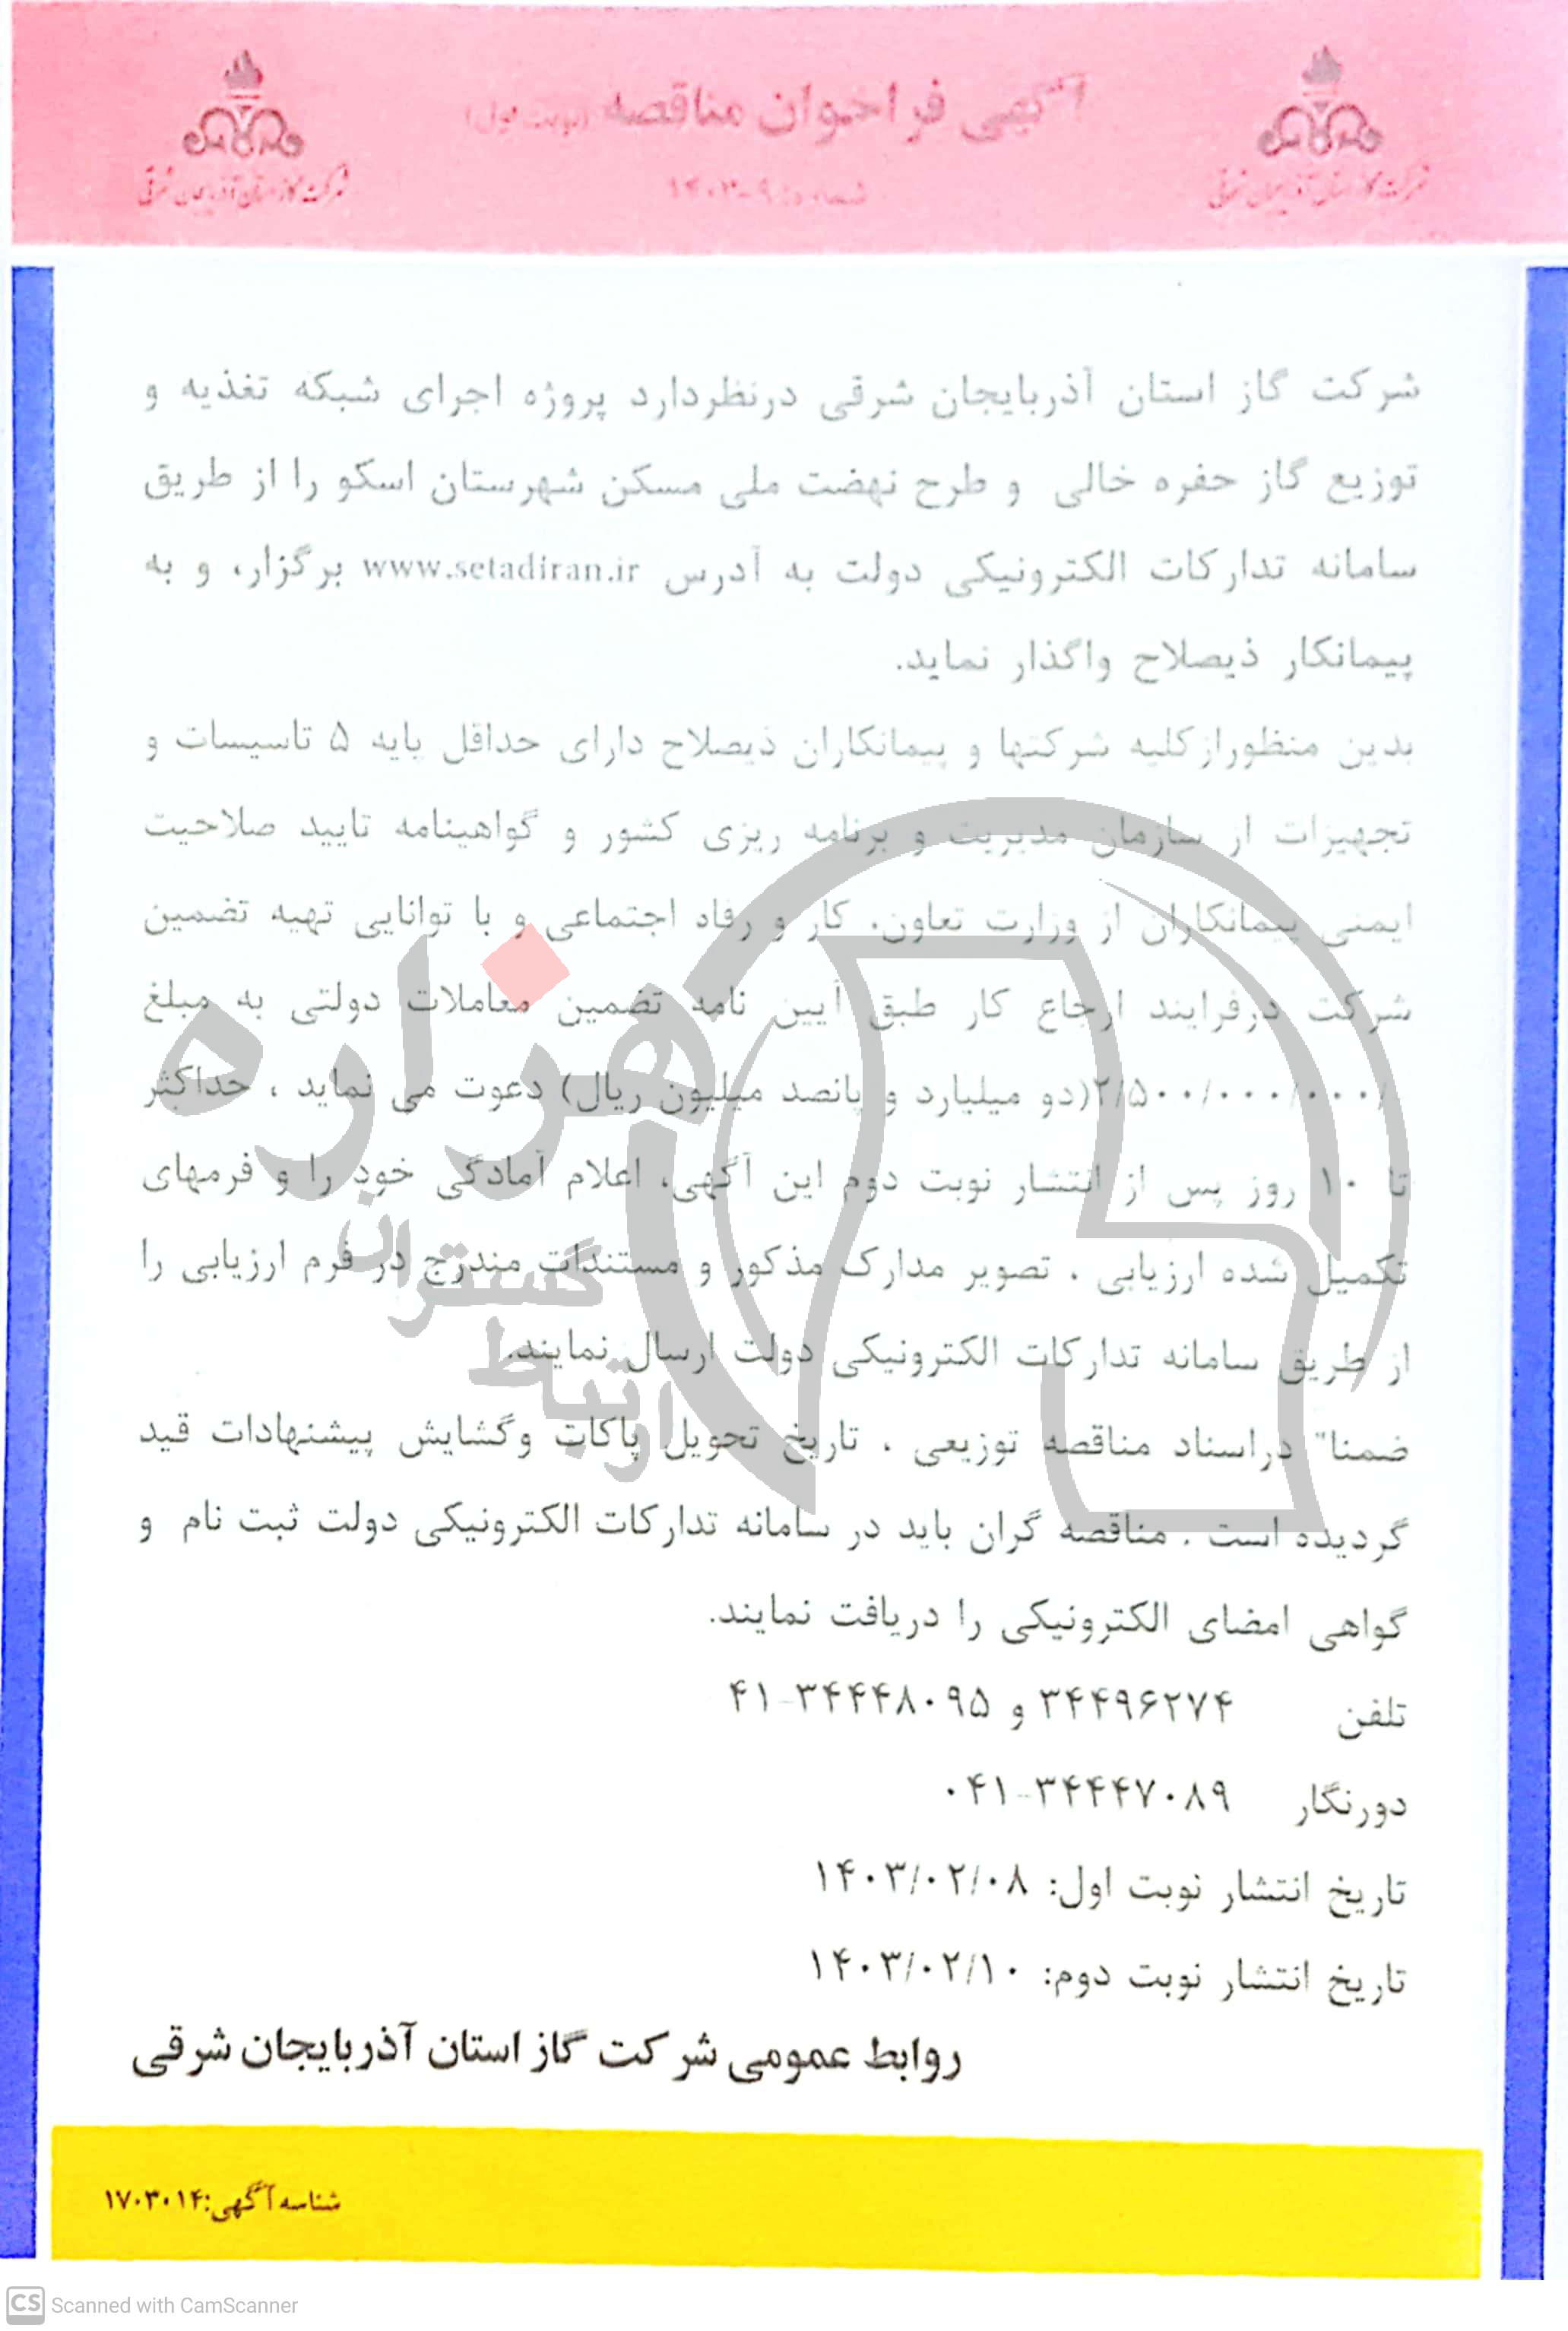 آگهی فراخوان مناقصه (نوبت اول)
شماره: ۹-۱۴۰۳
شرکت گاز استان آذربایجان شرقی
شرکت گاز استان آذربایجان شرقی
شرکت گاز استان آذربایجان شرقی درنظردارد پروژه اجرای شبکه تغذیه و
توزیع گاز حفره خالی و طرح نهضت ملی مسکن شهرستان اسکو را از طریق
سامانه تدارکات الکترونیکی دولت به آدرس www.setadiran.ir برگزار، و به
پیمانکار ذیصلاح واگذار نماید.
بدین منظورازکلیه شرکتها و پیمانکاران ذیصلاح دارای حداقل پایه ۵ تاسیسات و
تجهیزات از سازمان مدیریت و برنامه ریزی کشور و گواهینامه تایید صلاحیت
ایمنی پیمانکاران از وزارت تعاون، کار و رفاه اجتماعی و با توانایی تهیه تضمین
شرکت درفرایند ارجاع کار طبق آیین نامه تضمین معاملات دولتی به مبلغ
۲/۵۰۰/۰۰۰/۰۰۰/-(دو میلیارد و پانصد میلیون ریال) دعوت می نماید ، حداکثر
تا ۱۰ روز پس از انتشار نوبت دوم این آگهی، اعلام آمادگی خود را و فرمهای
تکمیل شده ارزیابی ، تصویر مدارک مذکور و مستندات مندرج در فرم ارزیابی را
از طریق سامانه تدارکات الکترونیکی دولت ارسال نمایند.
ضمنا" دراسناد مناقصه توزیعی ، تاریخ تحویل پاکات وگشایش پیشنهادات قید
گردیده است . مناقصه گران باید در سامانه تدارکات الکترونیکی دولت ثبت نام و
گواهی امضای الکترونیکی را دریافت نمایند.
تلفن ۳۴۴۹۶۲۷۴ و ۳۴۴۴۸۰۹۵-۴۱
دورنگار ۳۴۴۴۷۰۸۹-۰۴۱
تاریخ انتشار نوبت اول: ۱۴۰۳/۰۲/۰۸
تاریخ انتشار نوبت دوم: ۱۴۰۳/۰۲/۱۰
روابط عمومی شرکت گاز استان آذربایجان شرقی
شناسه آگهی:۱۷۰۳۰۱۴
هزاره
ارتباط گستران
CS Scanned with CamScanner